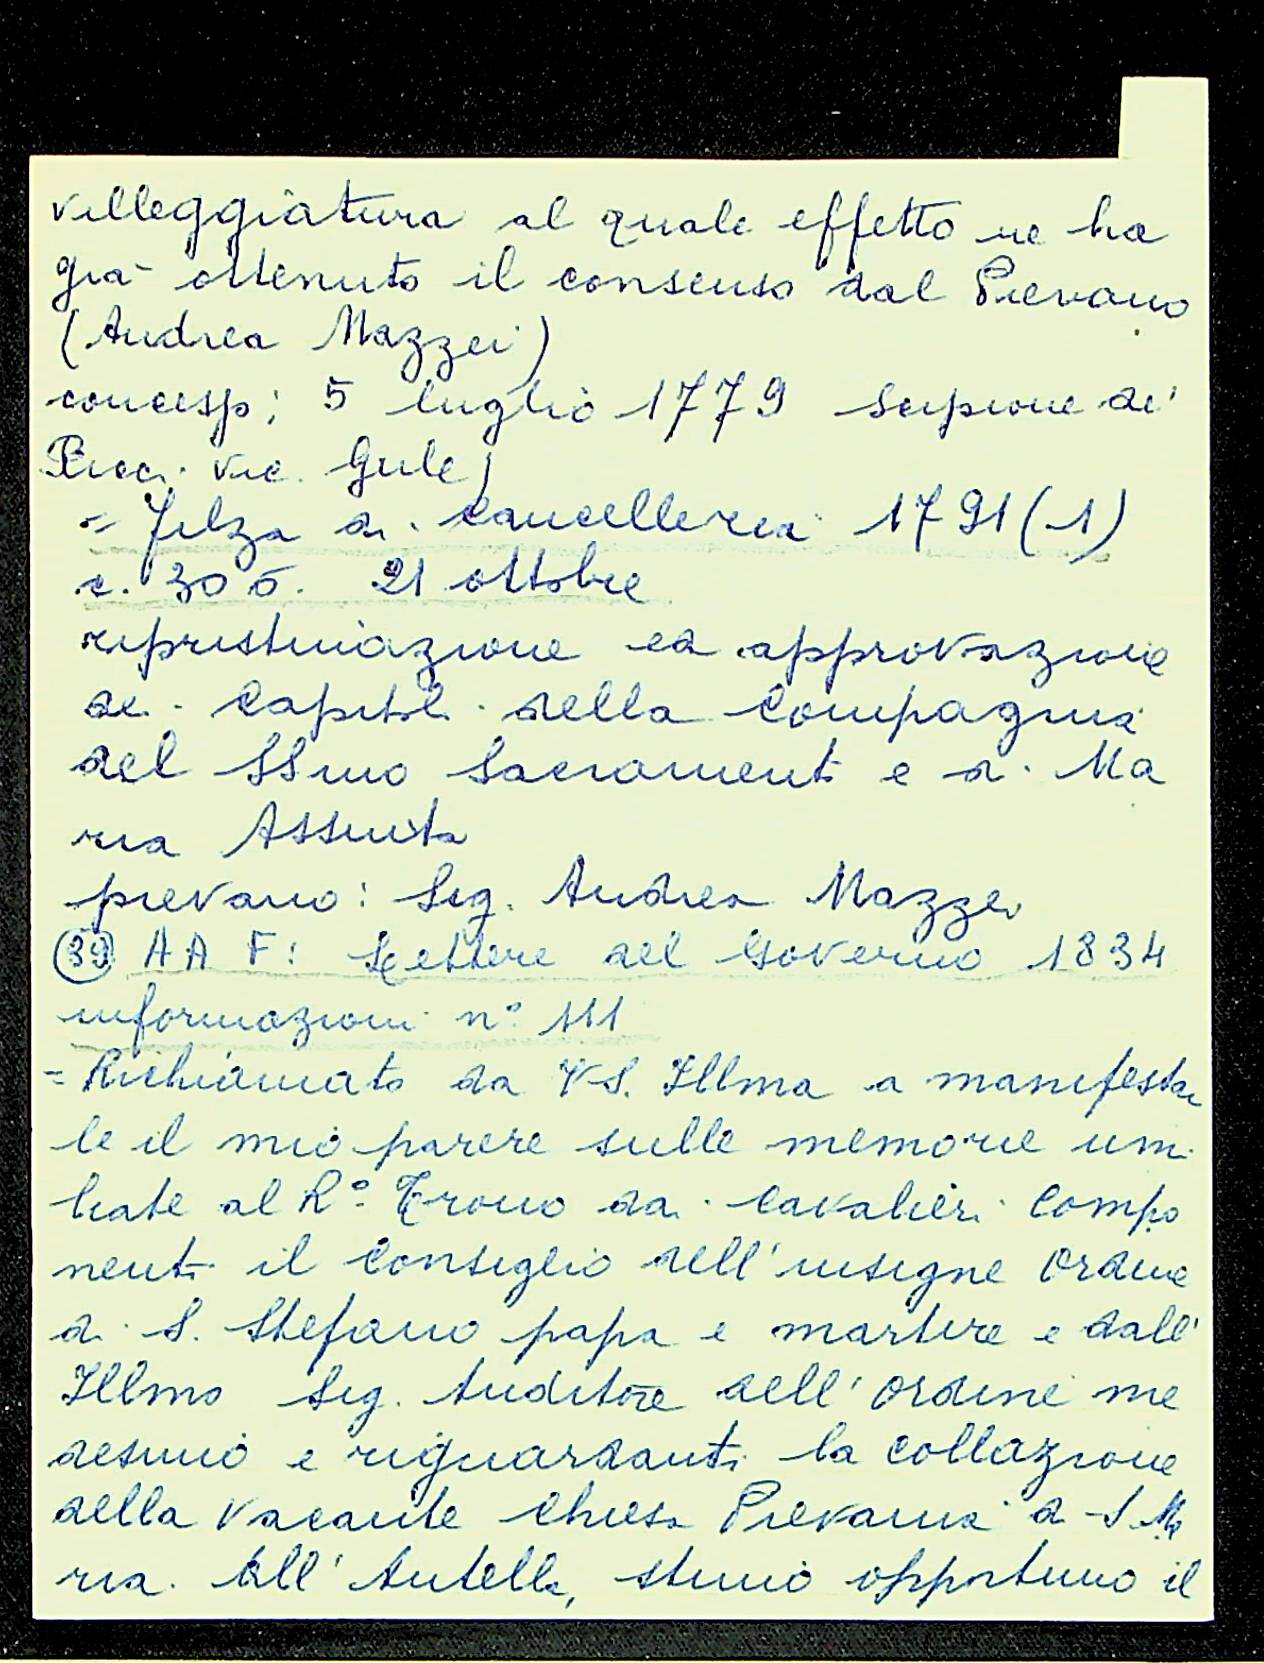 villeggiatura al quale effetto ne ha
già ottenuto il consenso dal Pievano
(Andrea Mazzei)
concesso; 5 luglio 1779 Scipione de'
Ricci Vic. Gnle)
= Filza di Cancelleria 1791 (1)
c. 306. 21 ottobre
ripristinazione ed approvazione
dei Capitoli della Compagnia
del SSmo Sacramento e di Ma
ria Assunta
pievano: Sig. Andrea Mazzei
(39) AAF: Lettere del Governo 1834
informazioni n° 111
= Richiamato da VS. Illma a manifestar
le il mio parere sulle memorie umi
liate al R° Trono dai Cavalieri Compo
nenti il Consiglio dell'insigne Ordine
di S. Stefano papa e martire e dall'
Illmo Sig. Auditore dell'Ordine me
desimo e riguardanti la collazione
della vacante Chiesa Pievania di S Ma
ria all'Antella, stimo opportuno il